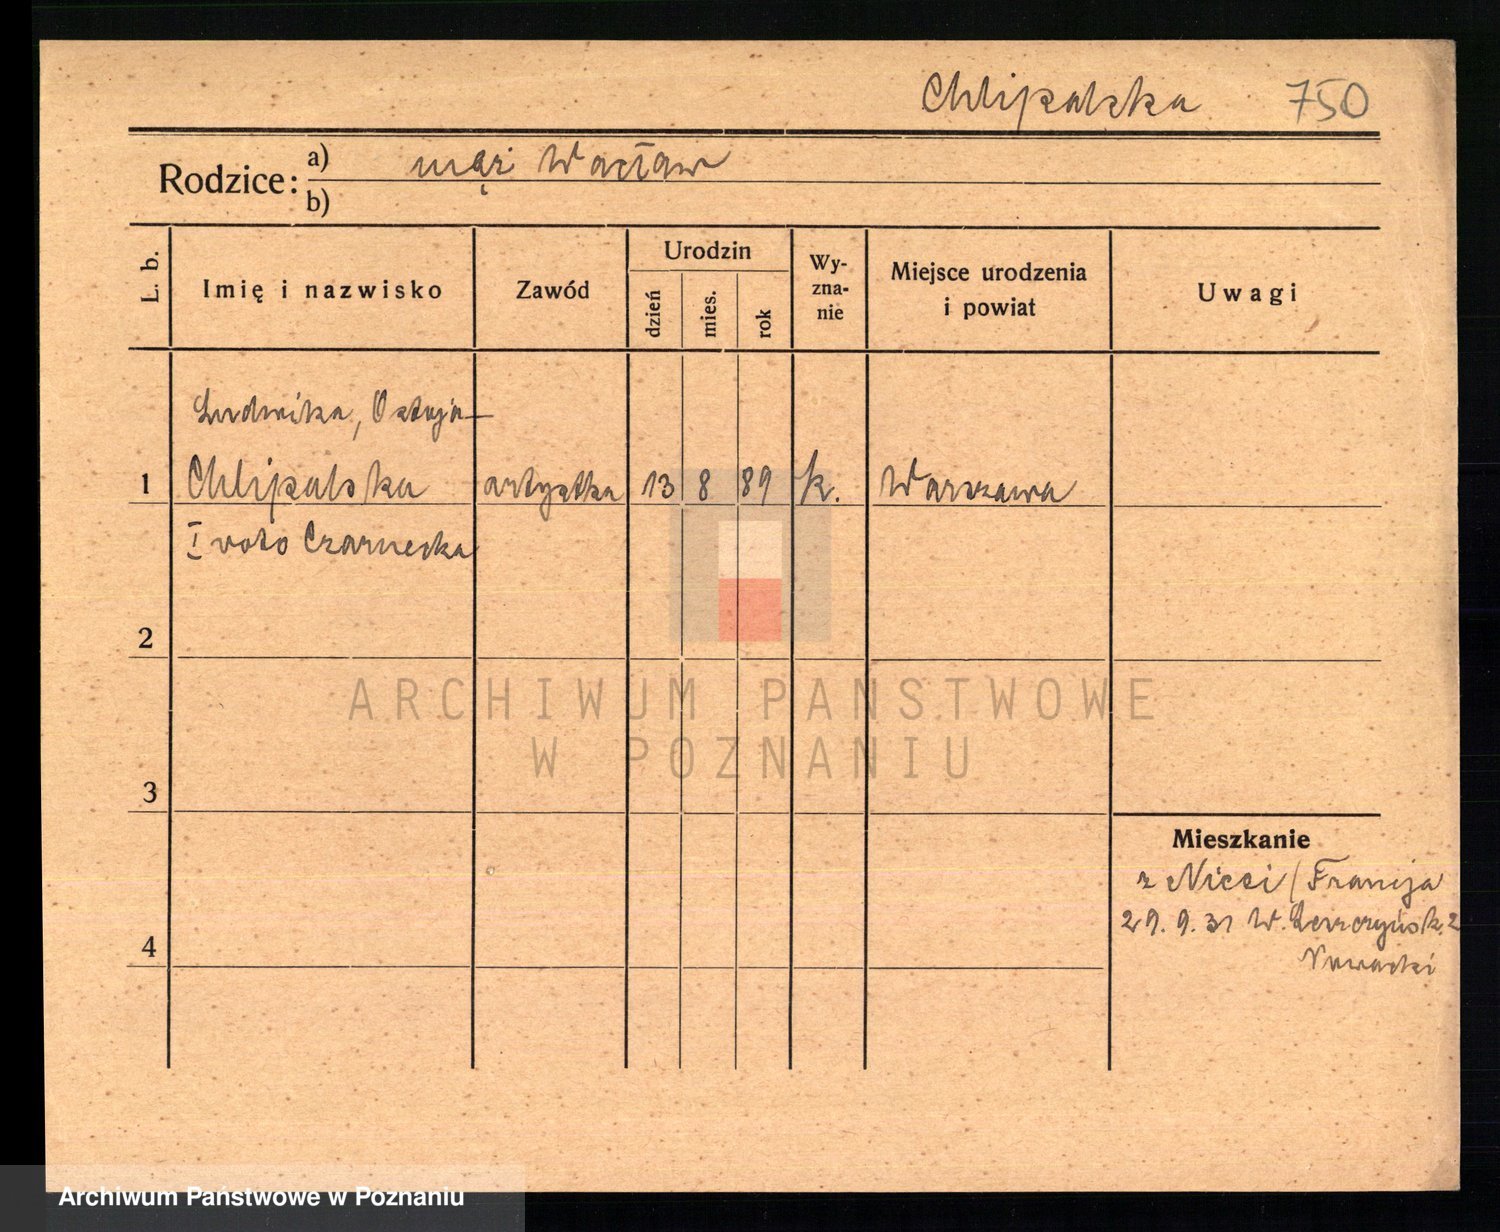 Chlipalska 750
Rodzice: a) mąż Wacław
b)
L. b.
Imię i nazwisko
Zawód
Urodzin
dzień
mies.
rok
Wy-
zna-
nie
Miejsce urodzenia
i powiat
Uwagi
Ludwika, Ostoja-
1 Chlipalska artystka 13 8 89 k. Warszawa
I voto Czarnecka
2
3
4
Mieszkanie
z Nicei / Francja
29. 9. 31 W. 2
Nawacki
ARCHIWUM PAŃSTWOWE
W POZNANIU
Archiwum Państwowe w Poznaniu